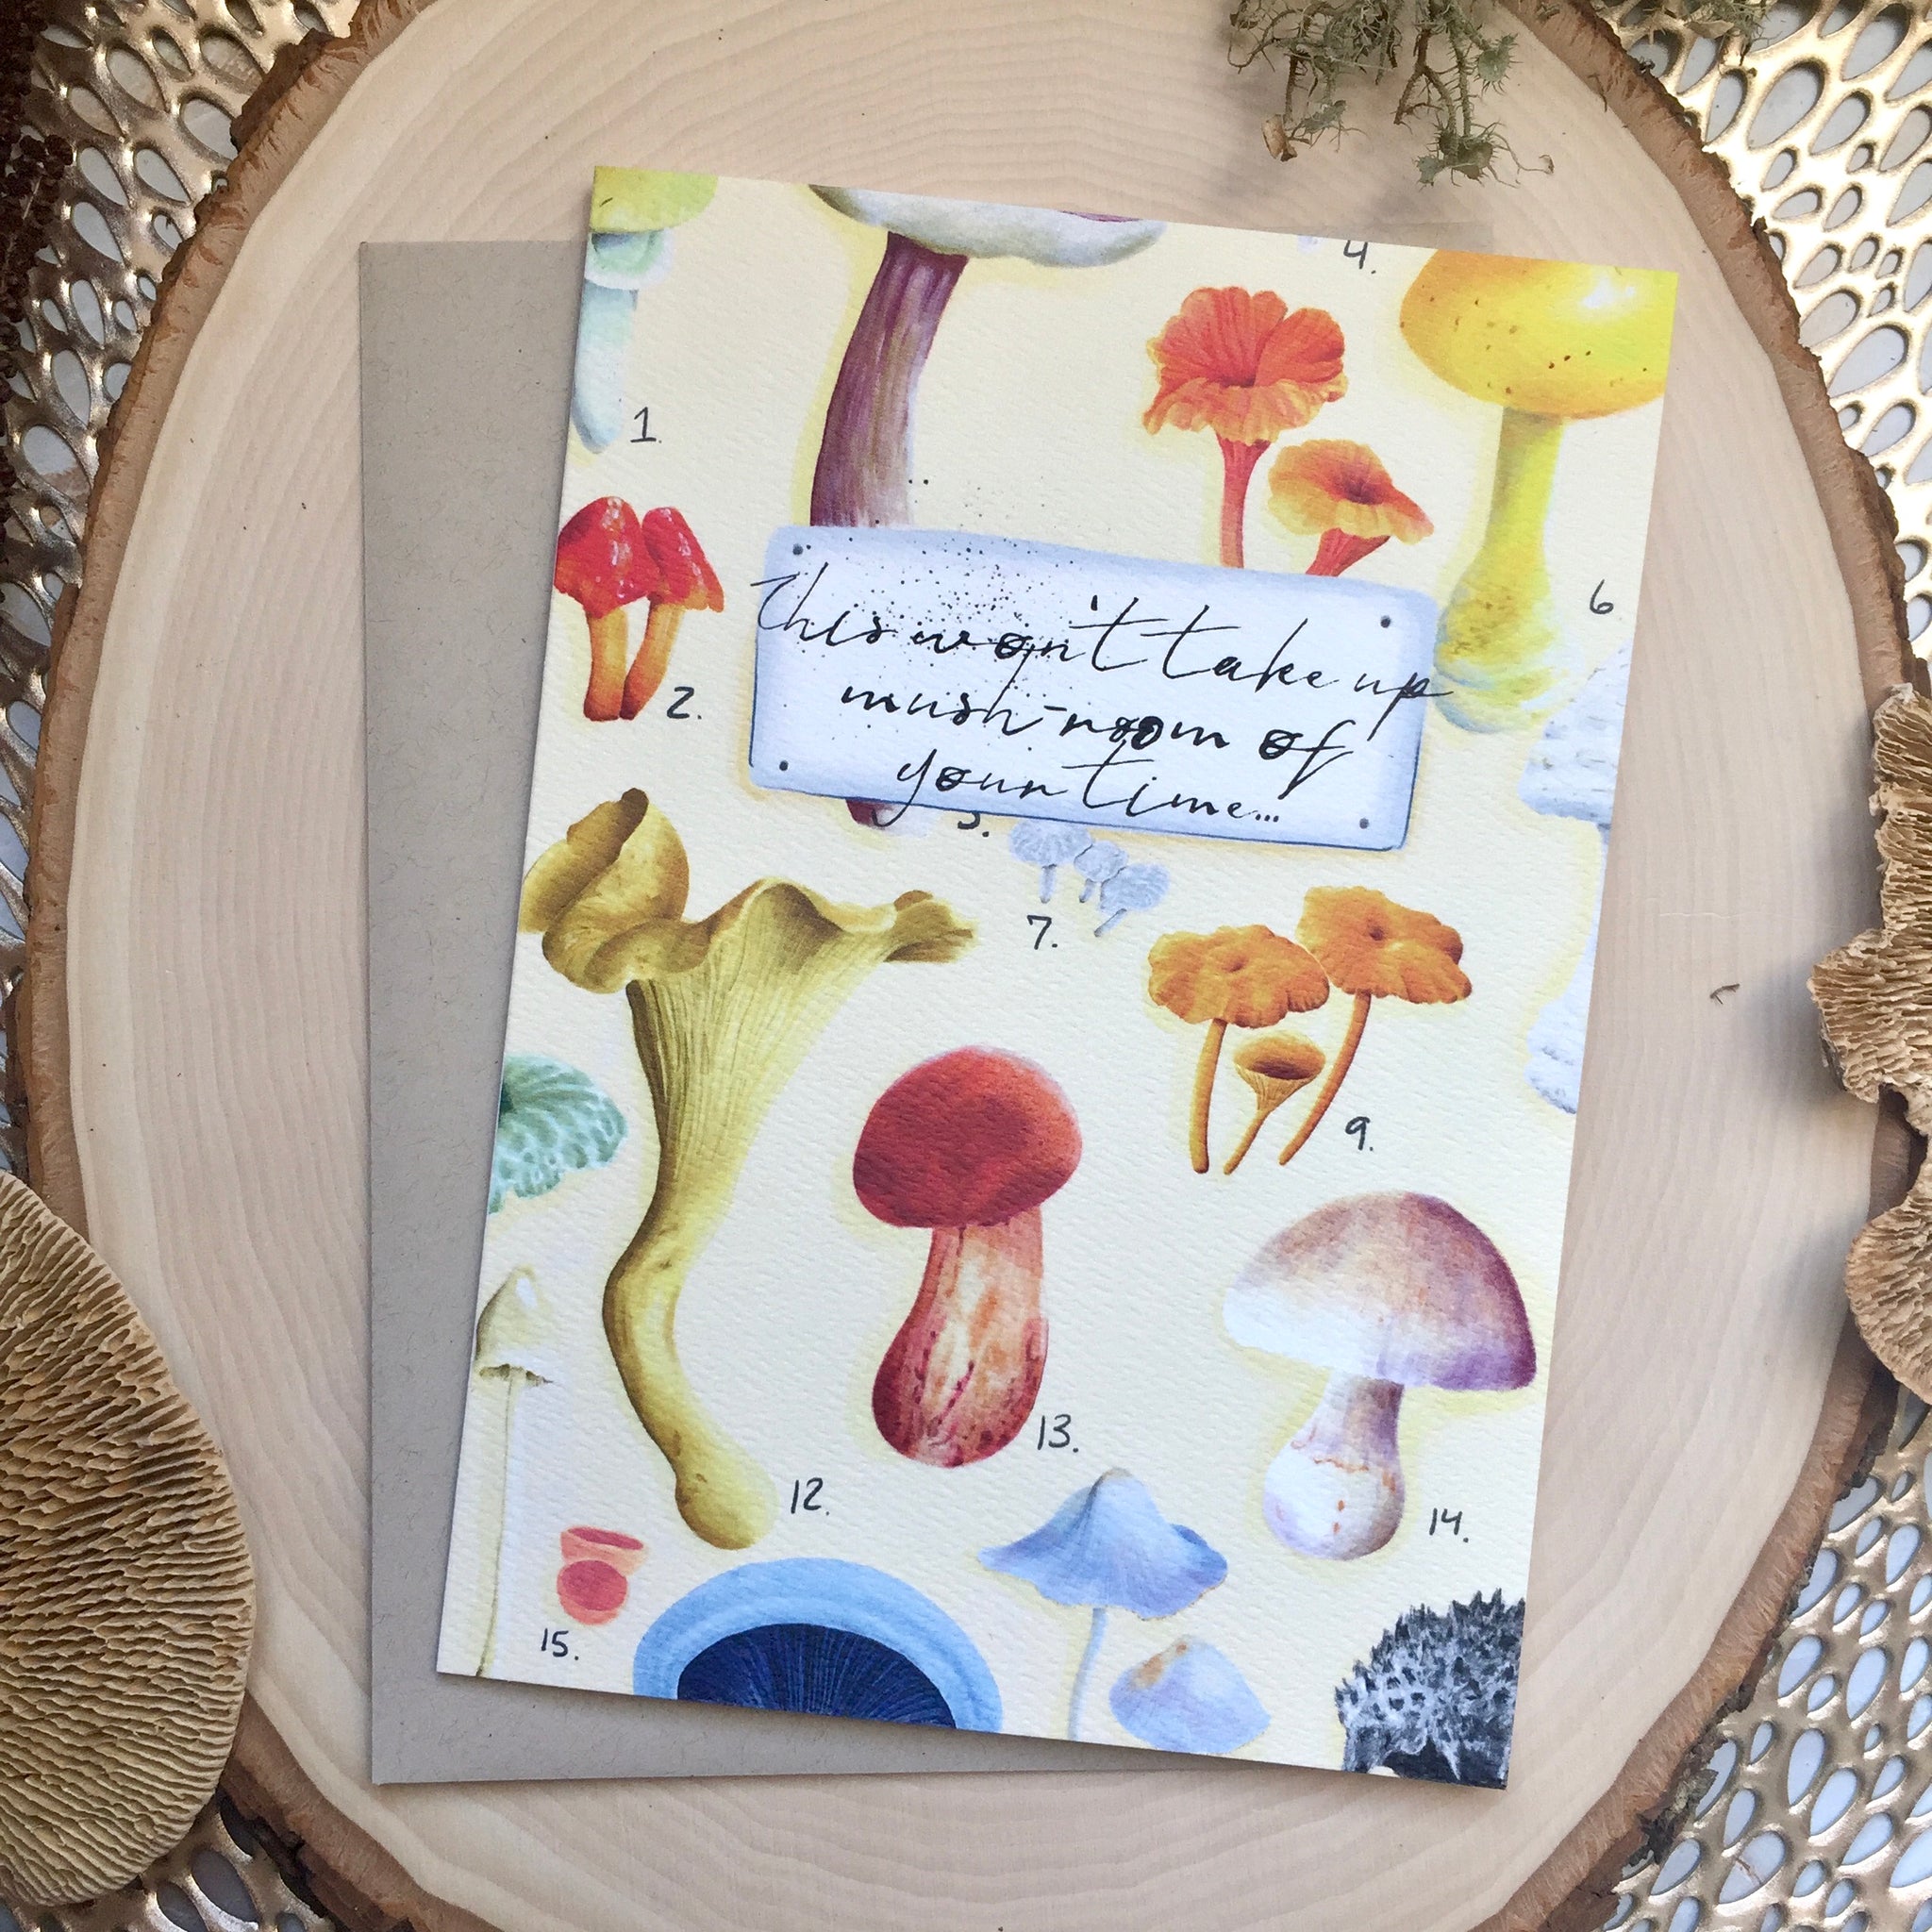 4.
1.
6
2.
This won't take up
mush-room of
your time...
7.
9.
13.
12.
14.
15.